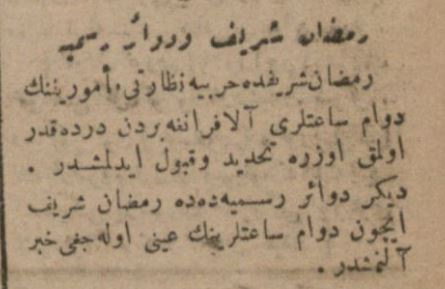 رمضان شريف ودوائر رسميه
رمضان شريفده حربيه نظارتى مأمورينك
دوام ساعتلرى آلافرانغه بردن درده قدر
اولمق اوزره تحديد وقبول ايدلمشدر .
ديكر دوائر رسميه‌ده‌ده رمضان شريف
ايچون دوام ساعتلرينك عينى اوله‌جغى خبر
آلنمشدر .